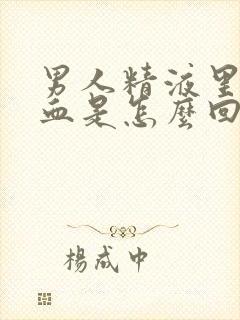 男人精液里
血是怎麽回
楊成中